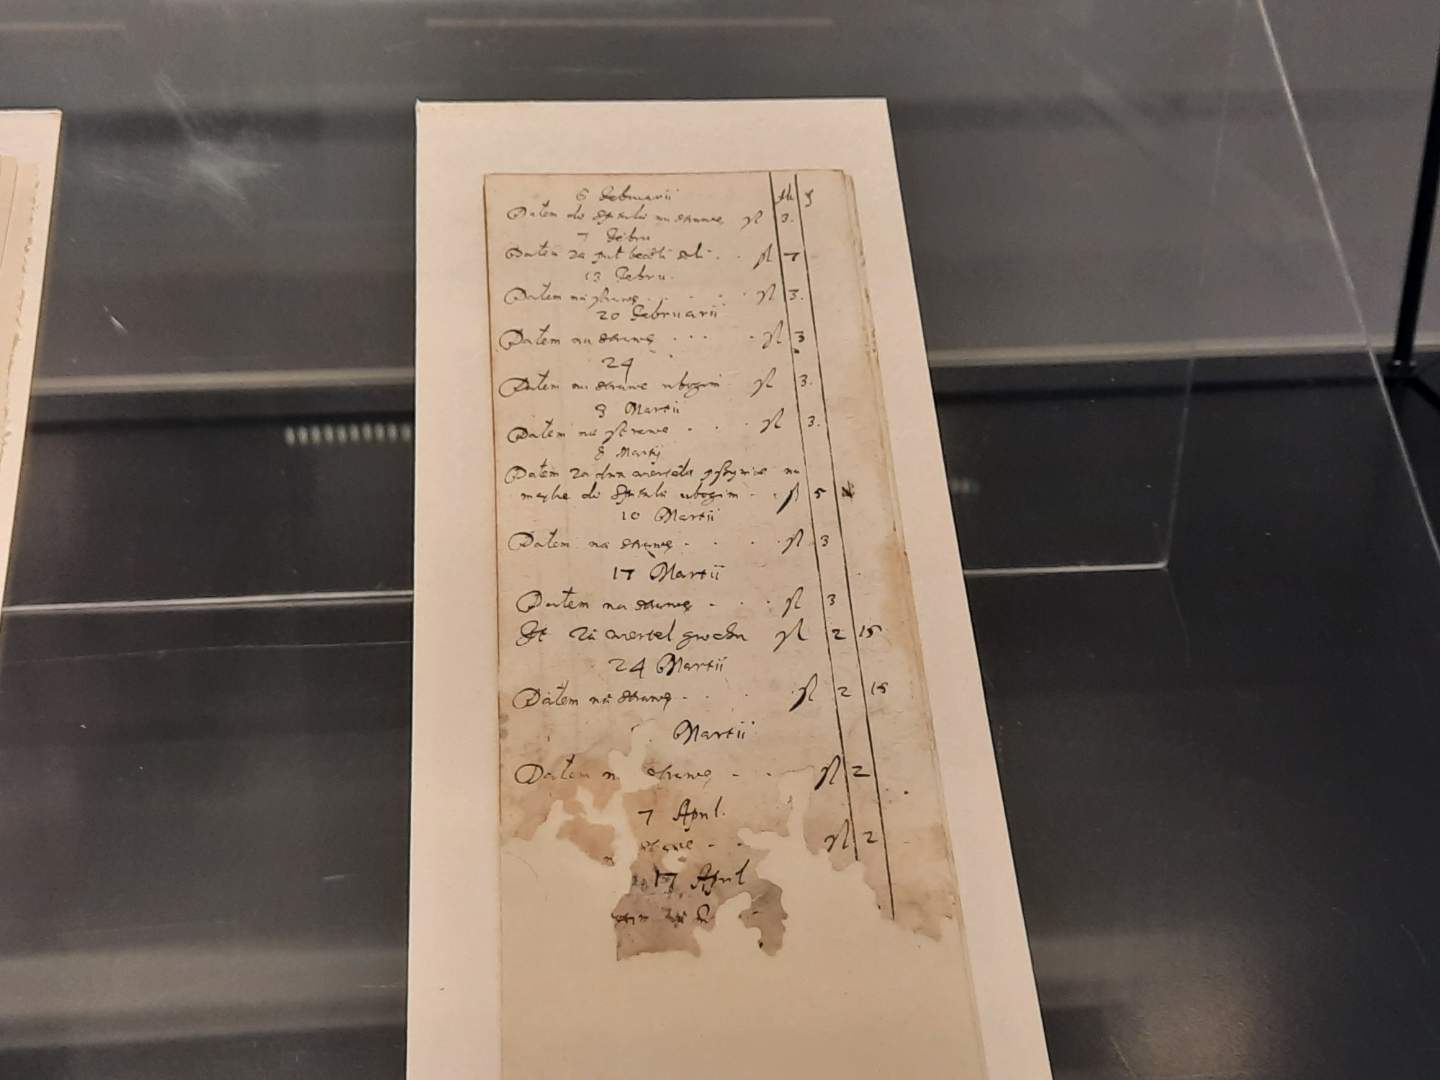 6 Februarii fl g
Dałem do Spitala na strawę fl 3.
7 Febru
Dałem za puł beczki soli . . fl 7
13 Febru.
Dałem na strawę . . . . fl 3.
20 Februarii
Dałem na strawę . . . . fl 3
24
Dałem na strawę ubogim fl 3.
3 Martii
Dałem na strawę . . . fl 3.
8 Martii
Dałem za dwa na
do Spitala ubogim . . fl 5
10 Martii
Dałem na strawę . . . . fl 3
17 Martii
Dałem na strawę . . . fl 3
It za cwertel grochu fl 2 15
24 Martii
Dałem na strawę . . . . fl 2 15
Martii
Dałem strawę . . fl 2
7 April.
. . fl 2
17 April